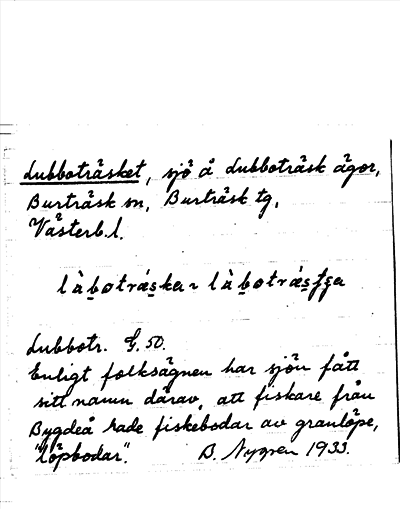 Lubboträsket, sjö å Lubboträsk ägor,
Burträsk sn, Burträsk tg,
Västerb. l.
làb̲oträs̲ka ~ làb̲oträs̲
Lubbotr. G. 50.
Enligt folksägnen har sjön fått
sitt namn därav, att fiskare från
Bygdeå hade fiskebodar av granlöpe,
"löpbodar".   B. Nygren 1933.